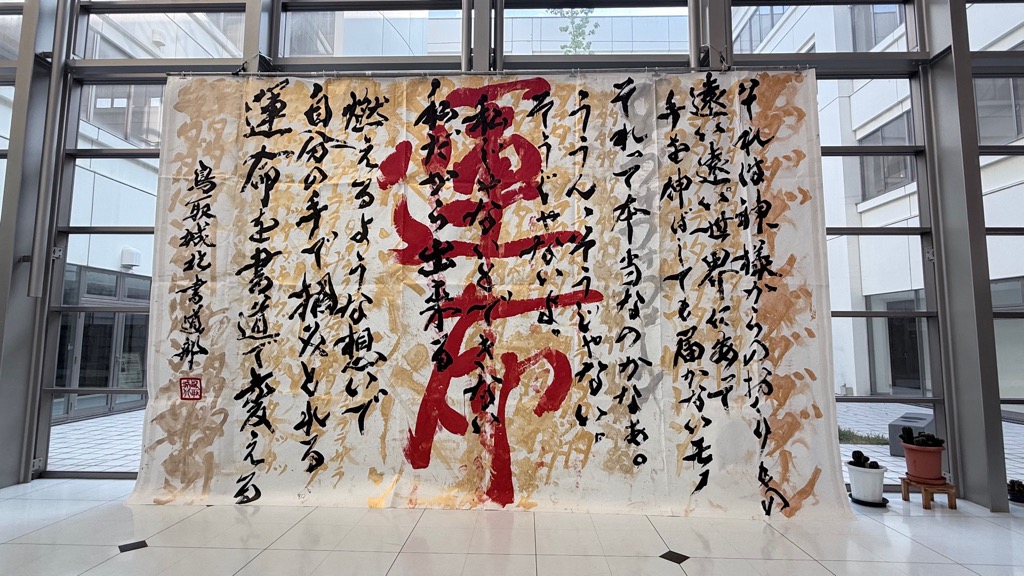 それは神様からのおくりもの
遠い遠い世界にあって
手を伸ばしても届かないモノ
それって本当なのかなぁ。
ううん、そうじゃない。
そうじゃないよ、
運命
私じゃないとできない
私だから出来る
燃えるような想いで
自分の手で掴みとれる
運命を書道で変える
鳥取城北書道部